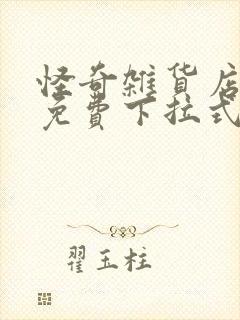 怪奇雜貨店
免費下拉式
翟玉柱